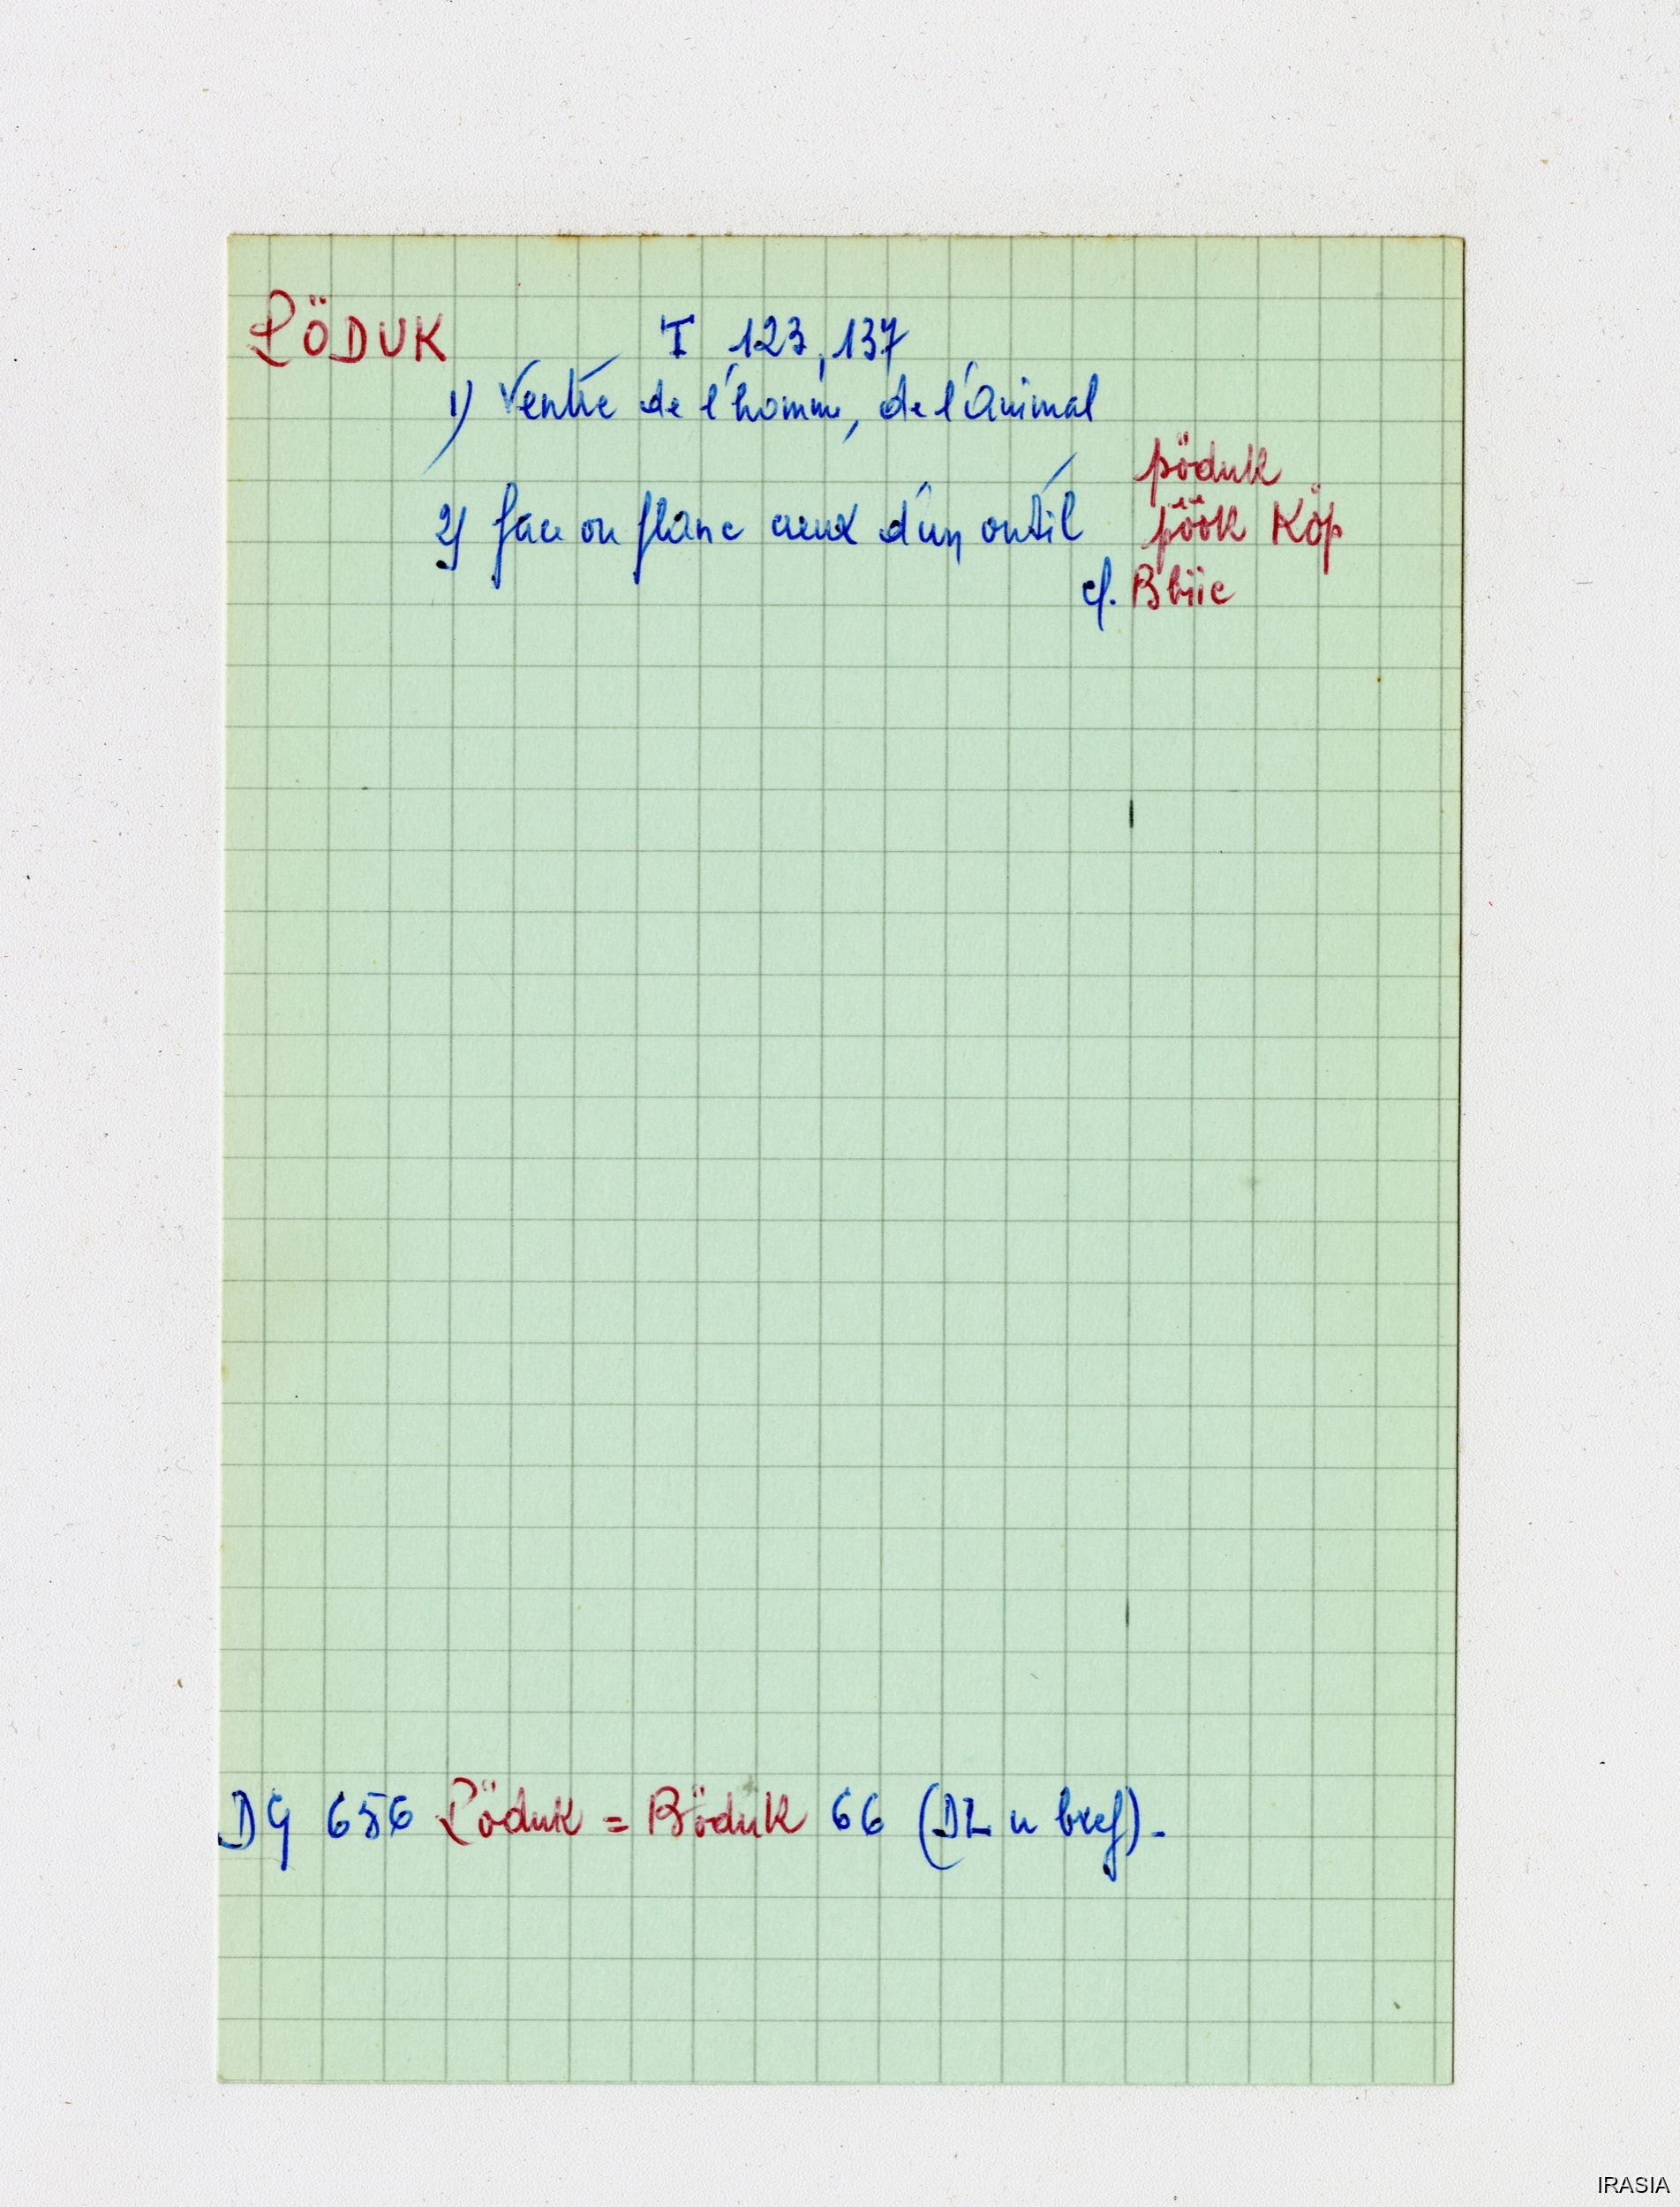 PÖDUK I 123, 137
1) Ventre de l'homme, de l'Animal
2) face ou flanc creux d'un outil
pöduk
pöök Köp
cf. Bbüc
DG 656 Pöduk = Böduk 66 (DL u bref).
IRASIA